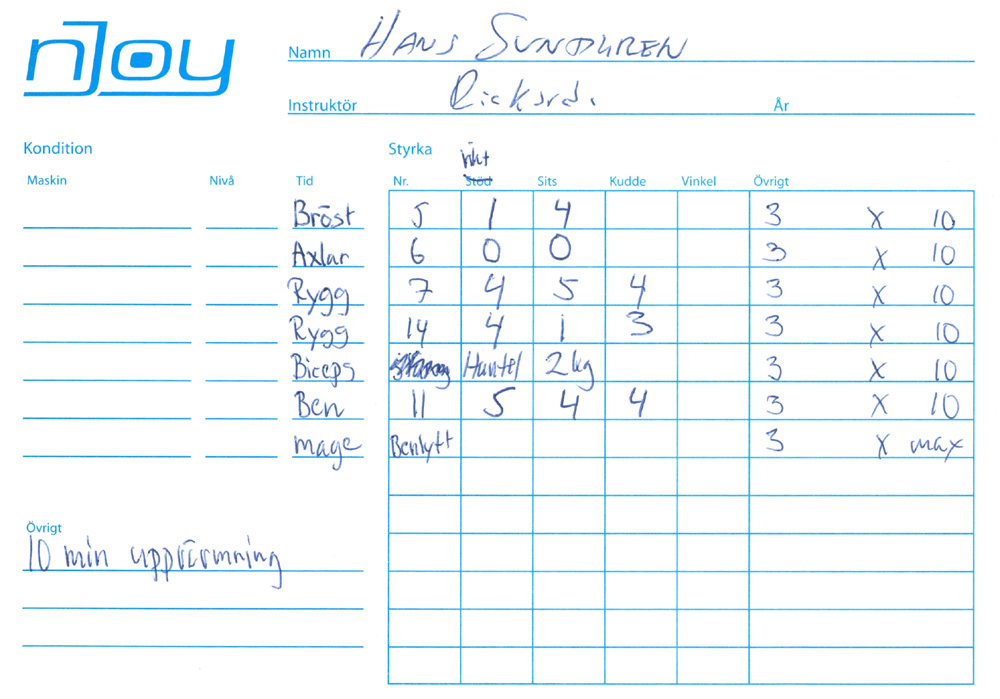 nJoy
Namn HANS SUNDGREN
Instruktör Rickard.
År
Kondition
Styrka
vikt
Maskin Nivå Tid Nr. Stöd Sits Kudde Vinkel Övrigt
Bröst 5 1 4 3 x 10
Axlar 6 0 0 3 x 10
Rygg 7 4 5 4 3 x 10
Rygg 14 4 1 3 3 x 10
Biceps Hantel 2 kg 3 x 10
Ben 11 5 4 4 3 x 10
mage Benlyft 3 x max
Övrigt
10 min uppvärmning